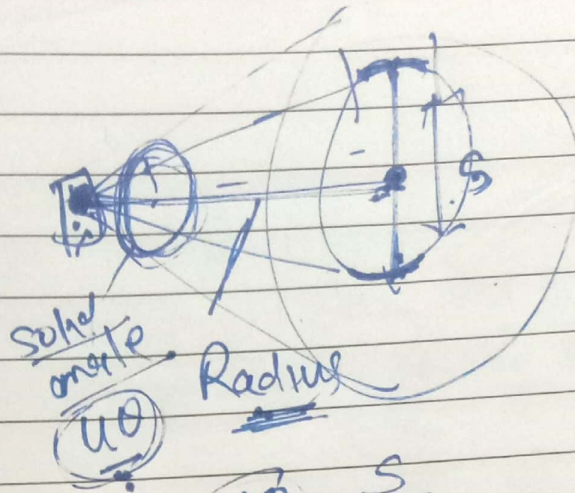 S
solid
angle
Radius
4θ
S